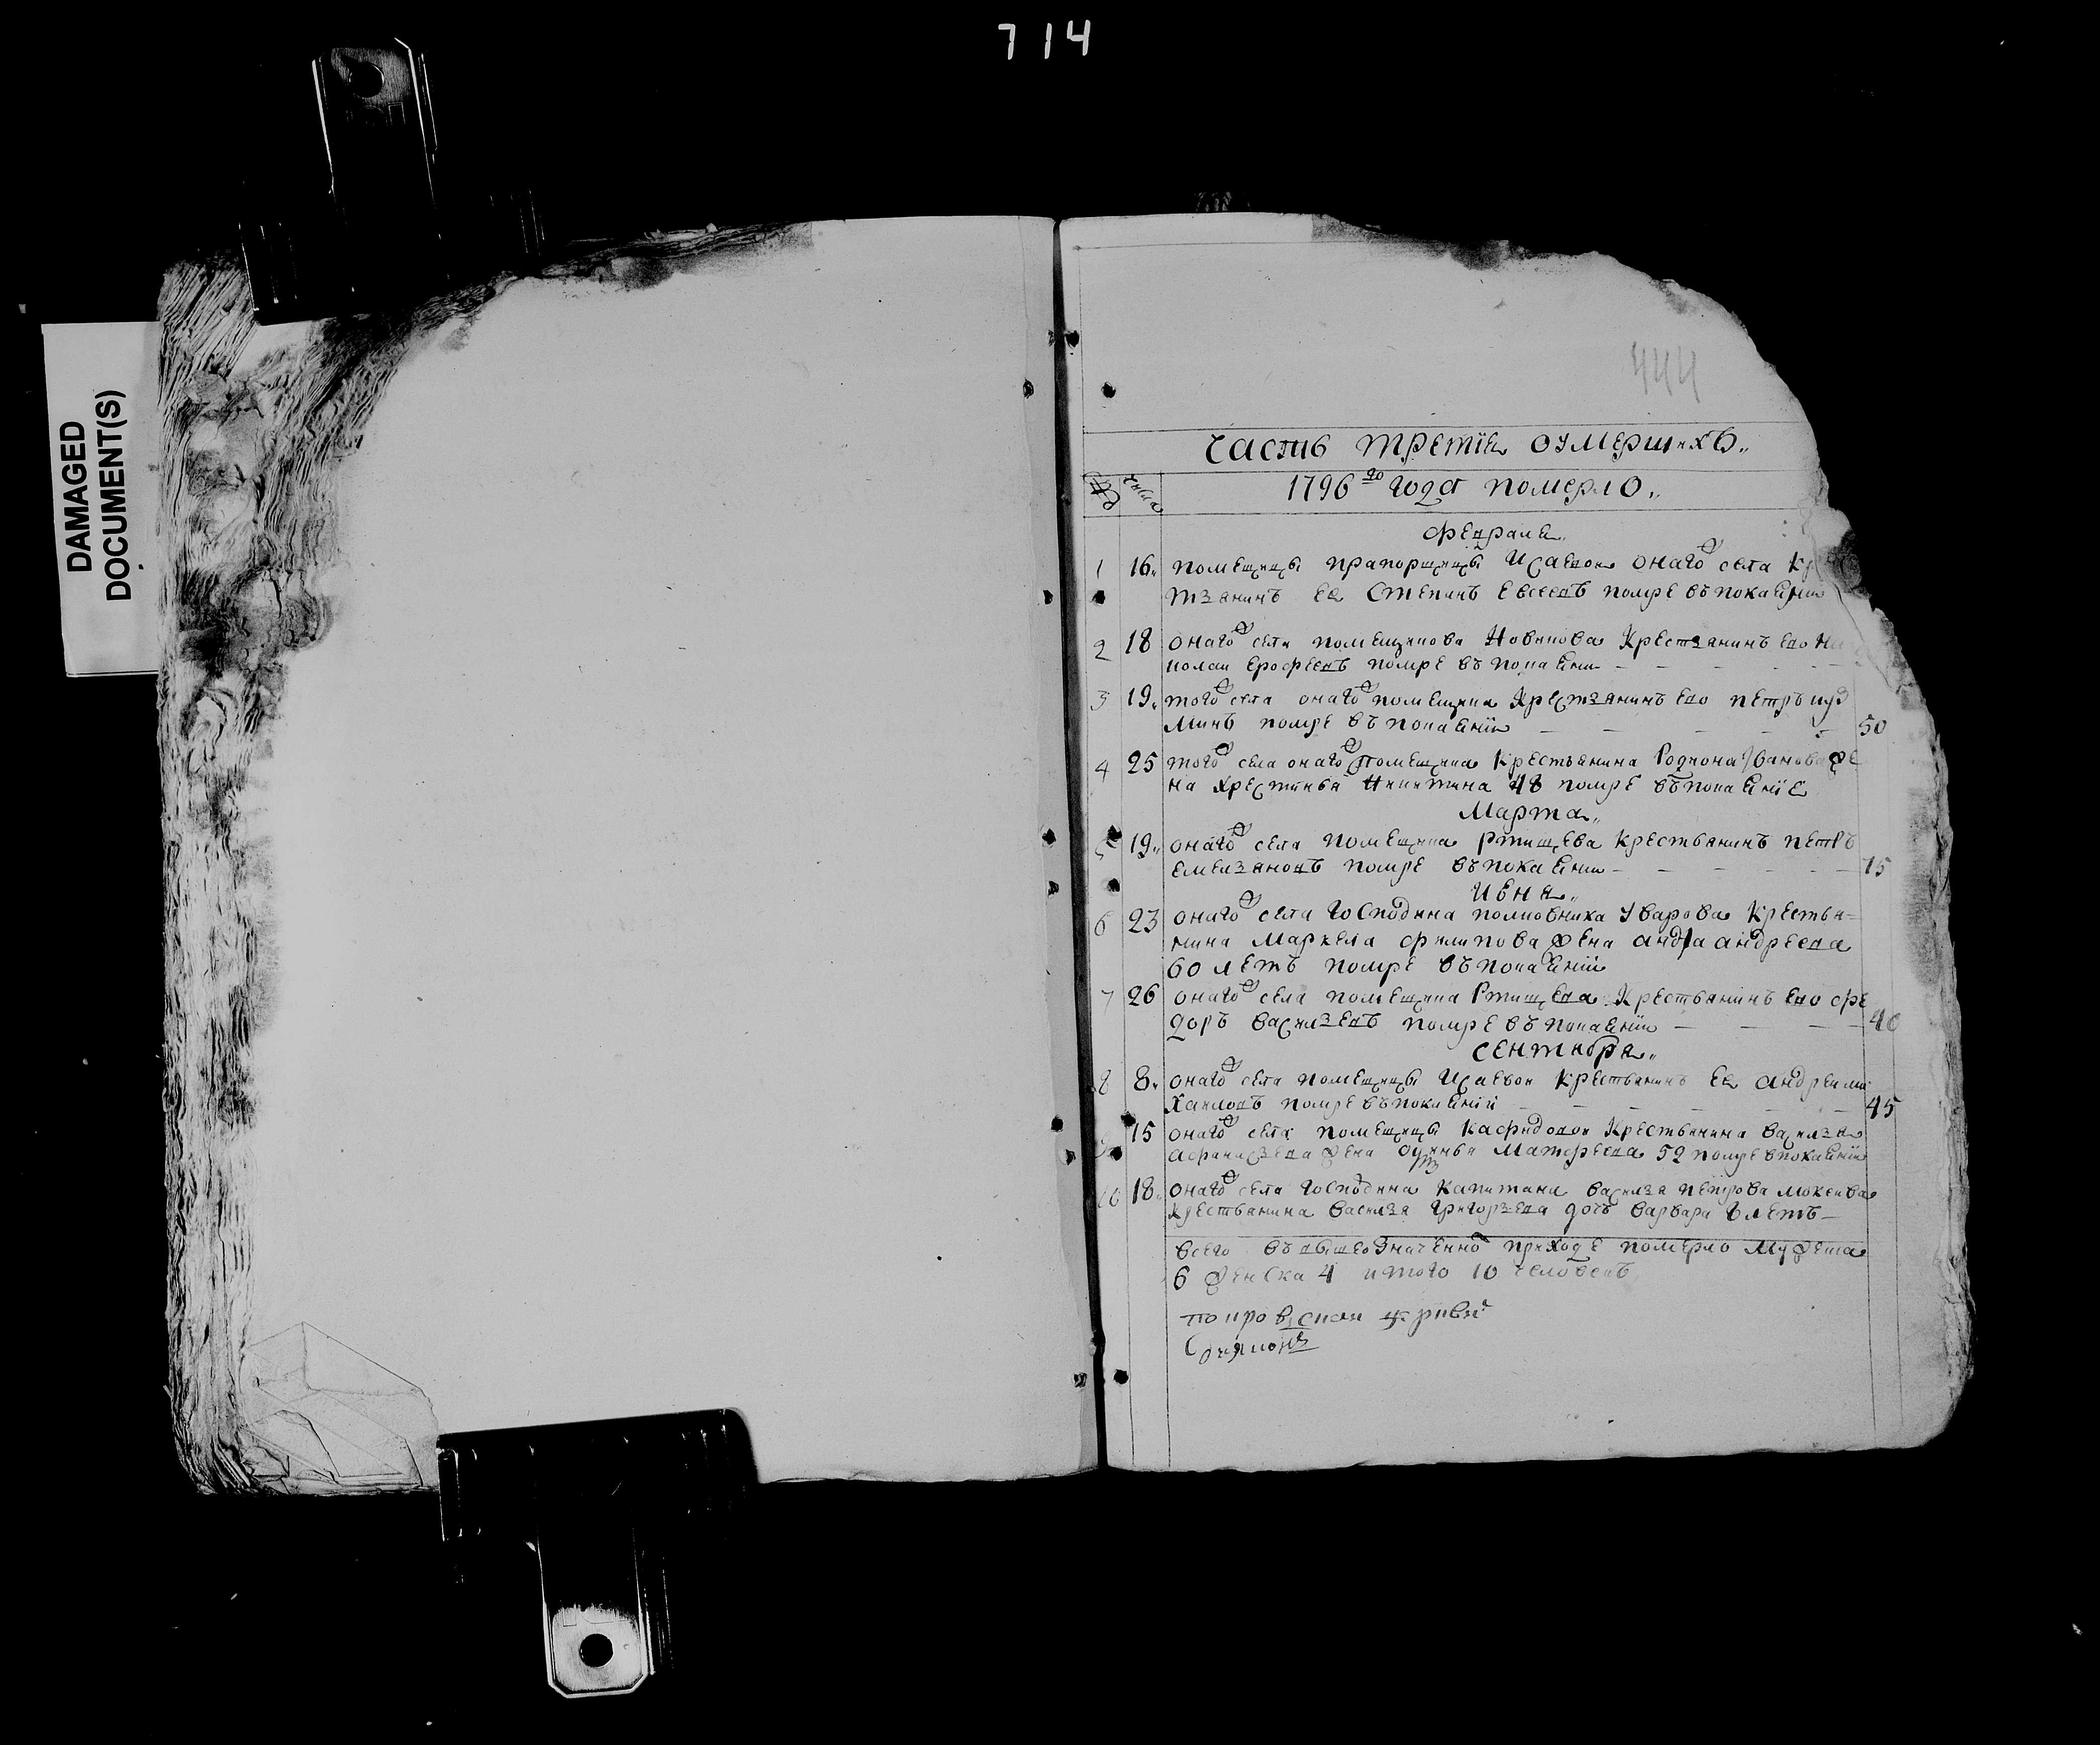 714
DAMAGED
DOCUMENT(S)
444
Часть третїя оумершихъ
№ число
1796 го года померло
Февраля
1 16 помещицы прапорщицы Исаевои онаго села Кр
тьянинъ ея Степанъ Евсеевъ помре въ покаянїи
2 18 онаго села помещикова Новикова Крестьянинъ ево Ни
колаи Ерофеевъ помре въ покаянии
3 19 того села онаго помещика Крестьянинъ ево петръ куз
минъ помре въ покаянїи 50
4 25 того села онаго помещика Крестьянина Родиона Иванова же
на Христинья Никитина 48 помре въ покаянїе
Марта
5 19 онаго села помещика Ртищева Крестьянинъ петръ
емельяновъ помре въ покаянии 75
Июня
6 23 онаго села господина полковника Уварова Крестья-
нина Маркела филипова жена андреева
60 летъ помре въ покаянїи
7 26 онаго села помещика Ртищева Крестьянинъ ево фе
доръ васильевъ помре въ покаянїи 40
сентября
8 8 онаго села помещицы Исаевои Крестьянинъ ея андреи ми
хаиловъ помре въ покаянїи 45
15 онаго села помещицы Крестьянина василья
афанасьева жена Матфеева 52 помре в покаянїи
10 18 онаго села господина Капитана василья петрова мокеива
крестьянина василья григорьева дочь варвара летъ
всего въ вышеозначенно приходе померло мужеска
6 женска 4 итого 10 человекъ